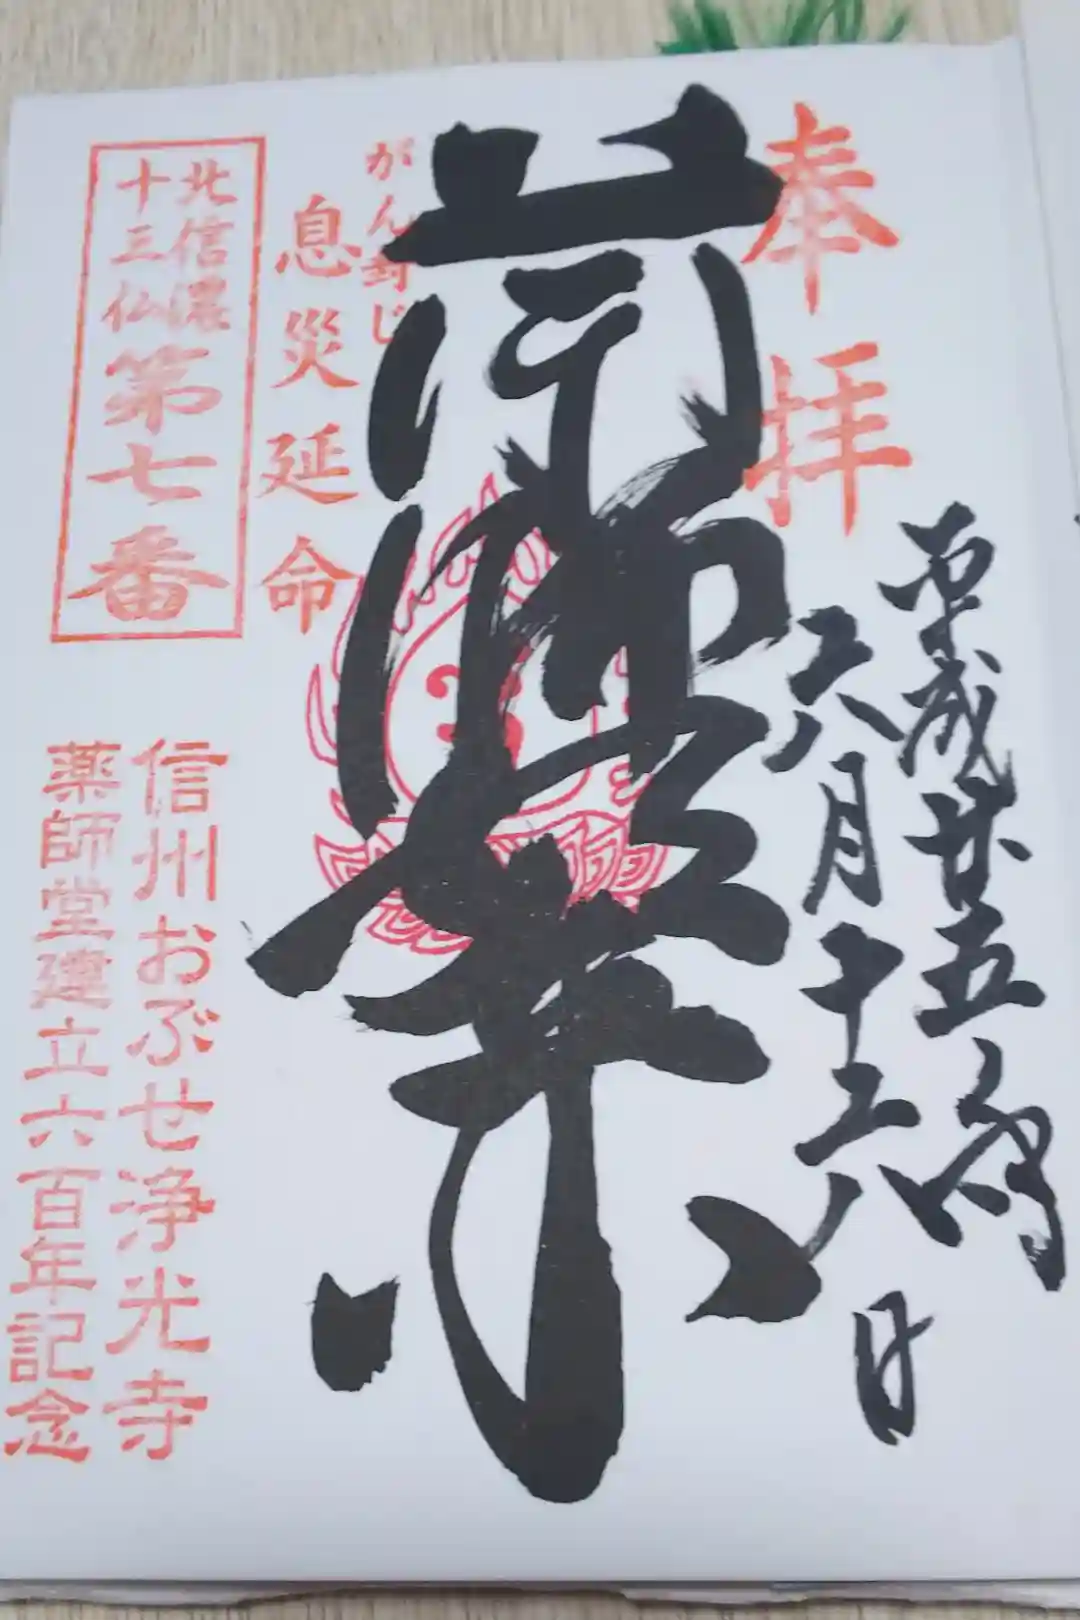 奉拝
平成廿五
六月十六日
がん封じ
息災延命
北信濃
十三仏
第七番
信州おぶせ浄光寺
薬師堂建立六百年記念